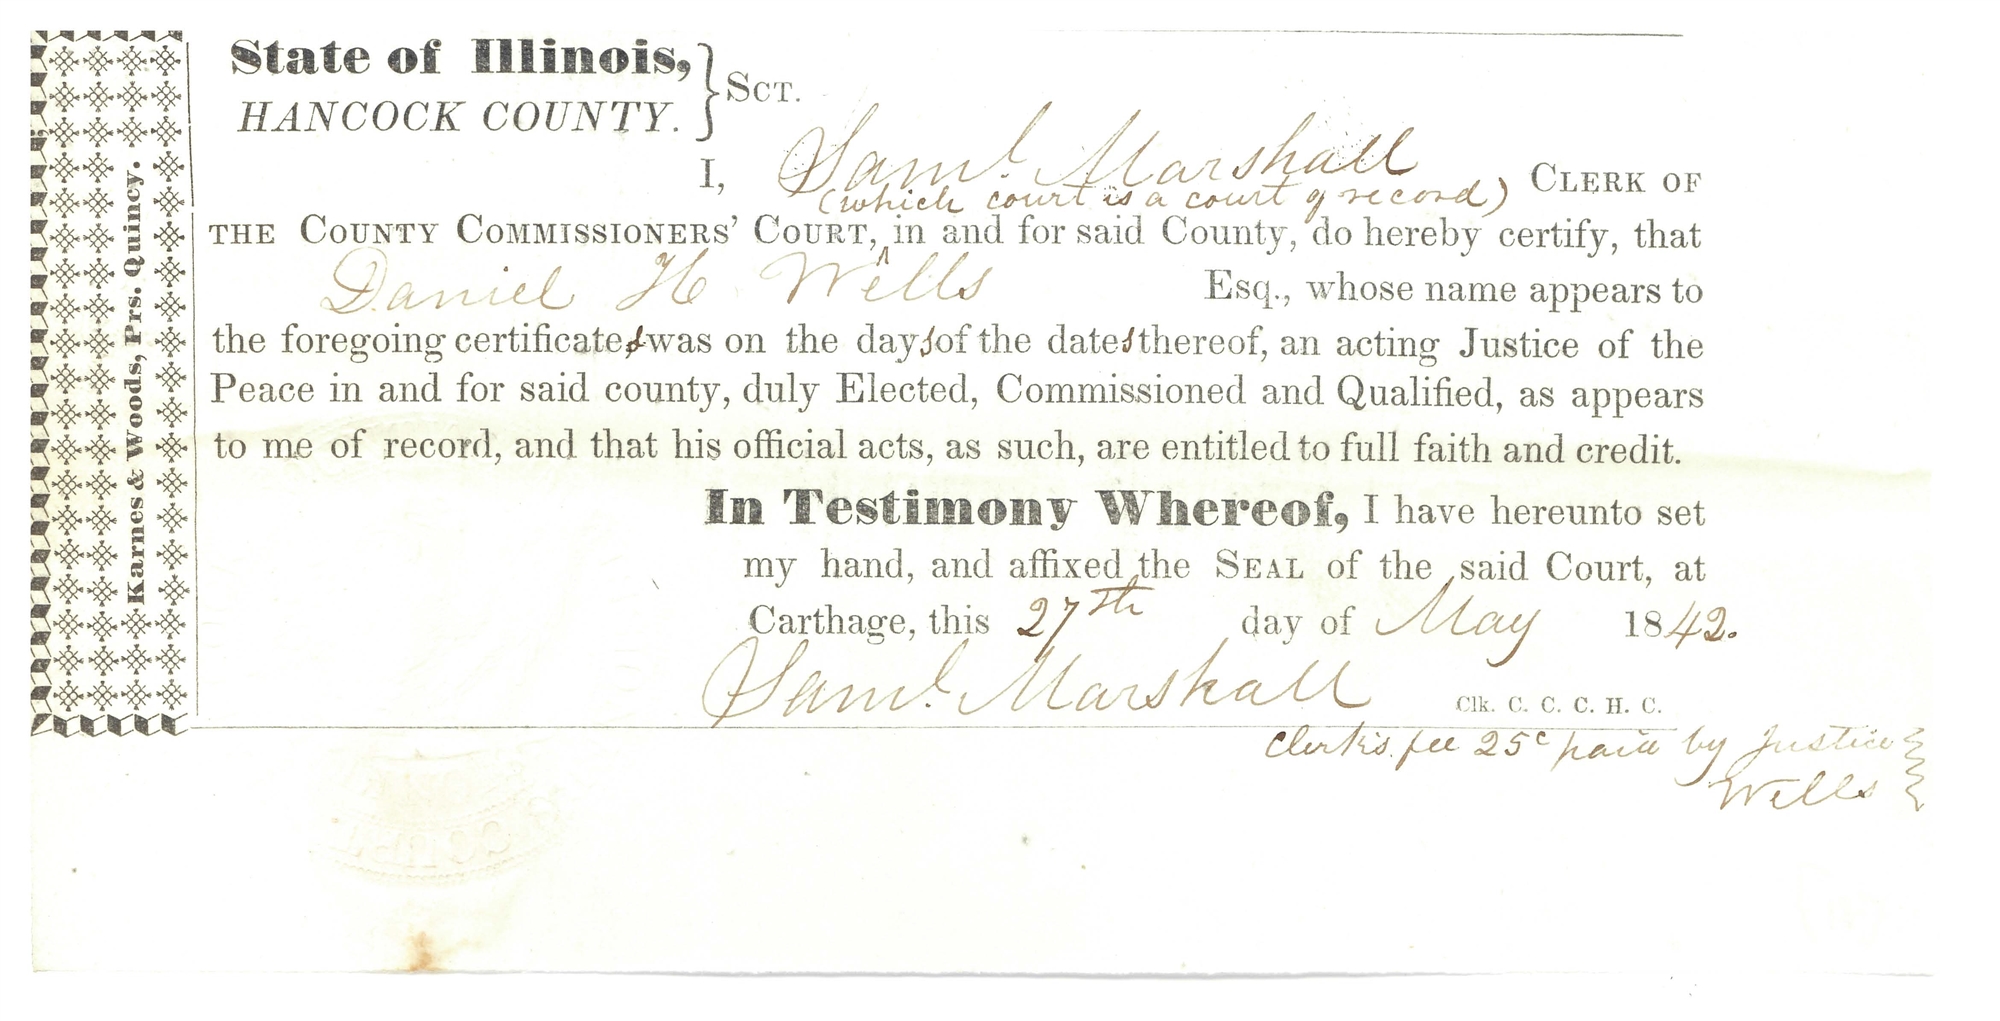 State of Illinois, } Sct.
HANCOCK COUNTY.
I, Saml. Marshall CLERK OF
(which court is a court of record)
THE COUNTY COMMISSIONERS' COURT, ^ in and for said County, do hereby certify, that
Daniel H Wells Esq., whose name appears to
the foregoing certificates was on the days of the dates thereof, an acting Justice of the
Peace in and for said county, duly Elected, Commissioned and Qualified, as appears
to me of record, and that his official acts, as such, are entitled to full faith and credit.
In Testimony Whereof, I have hereunto set
my hand, and affixed the SEAL of the said Court, at
Carthage, this 27th day of May 1842.
Saml. Marshall Clk. C. C. C. H. C.
Clerk's fee 25c paid by Justice
Wells
Karnes & Woods, Prs. Quincy.